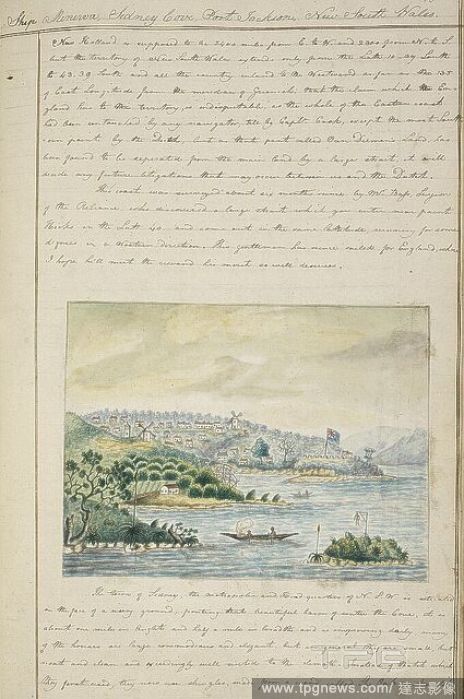 Ship Minerva, Sidney Cove, Port Jackson, New South Wales.
New Holland is supposed to be 2400 miles from E. to W. and 2300 from N. to S.
but the territory of New South Wales extends only from the Latt. 10..37 South
to 43.39 South and all the country inland to the Westward as far as the 135
of East Longitude from the meridian of Greenwich, that the claim which the En-
gland has to this territory, is indisputable, as the whole of the Eastern coast
had been untouched by any navigator till by Captn. Cook, except the most South
ern point by the Dutch, but as that part called Van Diemens Land, has
been found to be seperated from the main land by a large strait, it will
decide any future litigations that may occur between us and the Dutch.
This coast was surveyed about six months since by Mr. Bass, Surgeon
of the Reliance who discovered a large strait which you enter near point
Hicks in the Latt. 40. and come out in the same lattitude, running for some
degrees in a Western direction. This gentleman has since sailed for England, where
I hope he'll meet the reward his merit so well deserves.
The town of Sidney, the metropolis and Head quarters of N.S.W. is situated
on the face of a rising ground, fronting that beautiful haven of water the Cove, it is
about one mile in length and half a mile in breadth and is improving daily many
of the houses are large commodious and elegant but in general they are small but
neat and clean and exceedingly well suited to the climate, instead of thatch which
they first used, they now use shingles, made from
www.tpgnews.com/達志影像